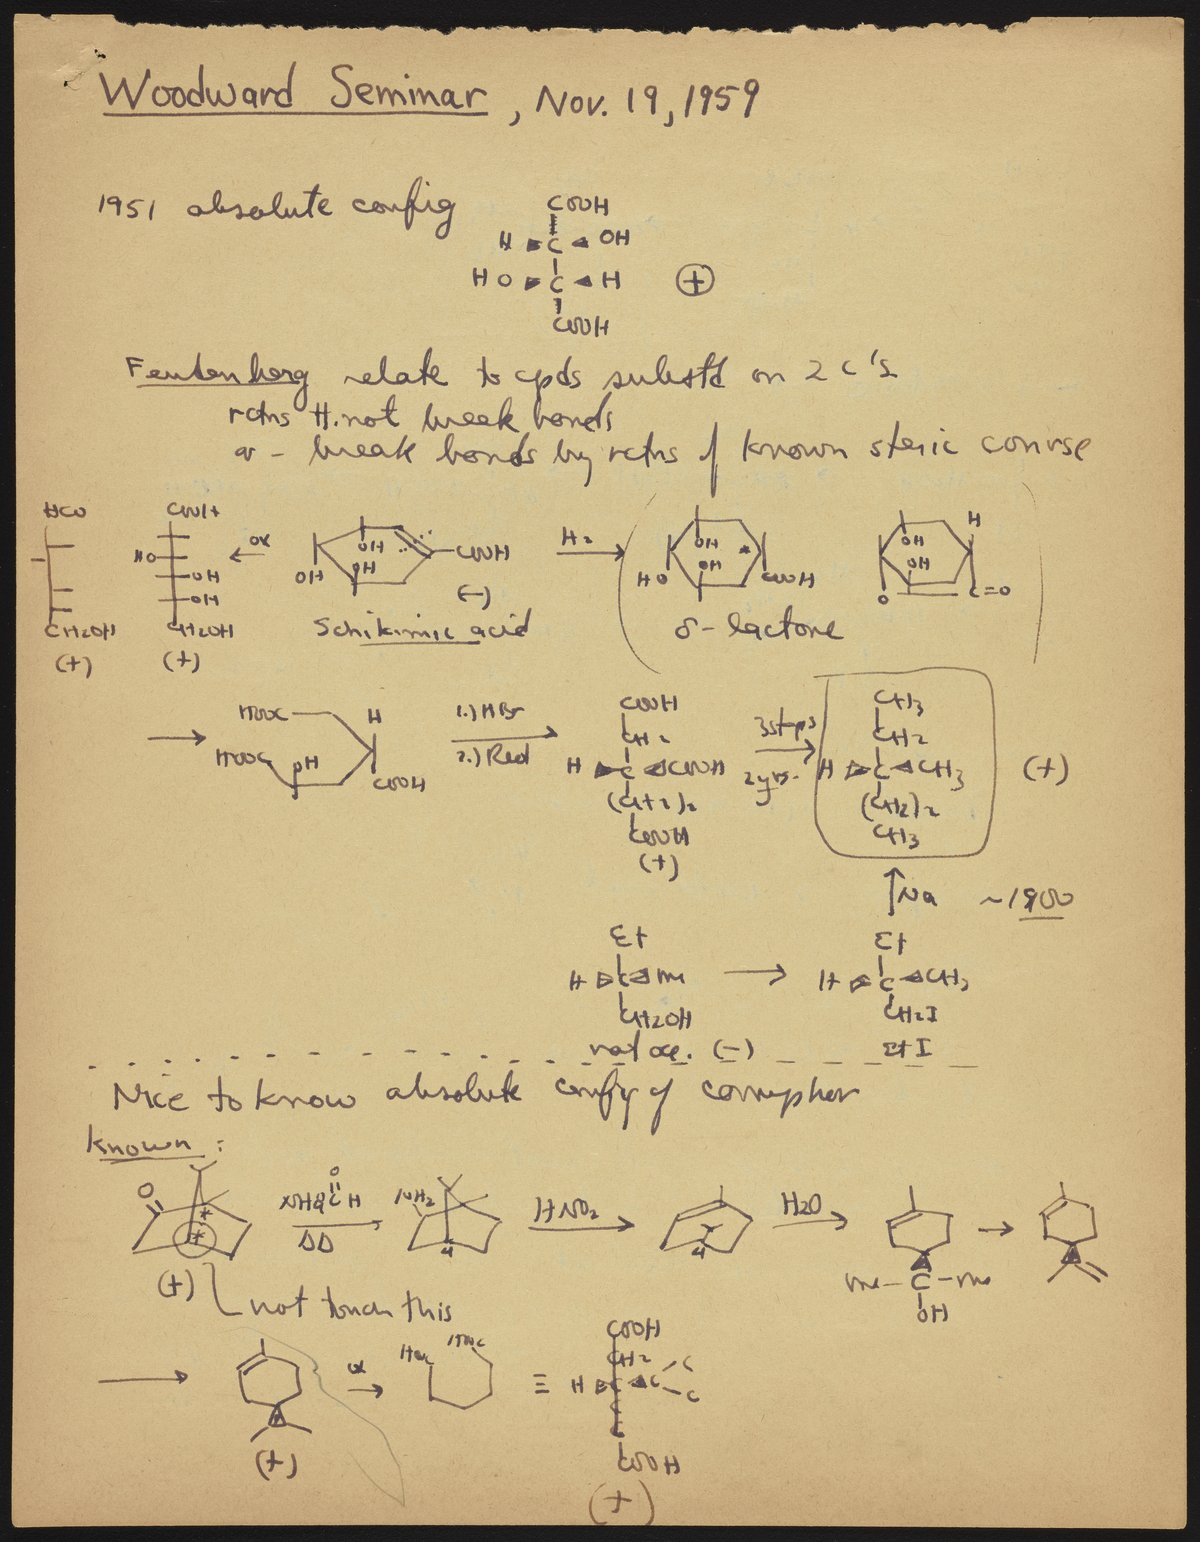 Woodward Seminar, Nov. 19, 1959
1951 absolute config
COOH
H C OH
HO C H
COOH
(+)
relate to cpds substd on 2 C's
rctns not break bonds
or - break bonds by rctns of known steric course
HCO
CH2OH
(+)
COOH
HO
OH
OH
CH2OH
(+)
ox
OH
OH
OH
COOH
(-)
Schikimic acid
H2
OH
OH
HO
*
COOH
δ-lactone
H
OH
OH
O
C=O
HOOC
HOOC
OH
H
COOH
1.) HBr
2.) Red
COOH
CH2
H C COOH
(CH2)2
COOH
(+)
3 steps
2 yrs.
CH3
CH2
H C CH3
(CH2)2
CH3
(+)
Na ~1900
Et
H C Me
CH2OH
(-)
Et
H C CH3
CH2I
Et I
Nice to know absolute config of camphor
Known:
O
*
*
(+)
not touch this
O
NH2CH
ΔΔ
NH2
H
HNO2
H
H2O
Me-C-Me
OH
(+)
ox
HOOC
HOOC
≡
COOH
CH2
H C C C
C
C
C
COOH
(+)